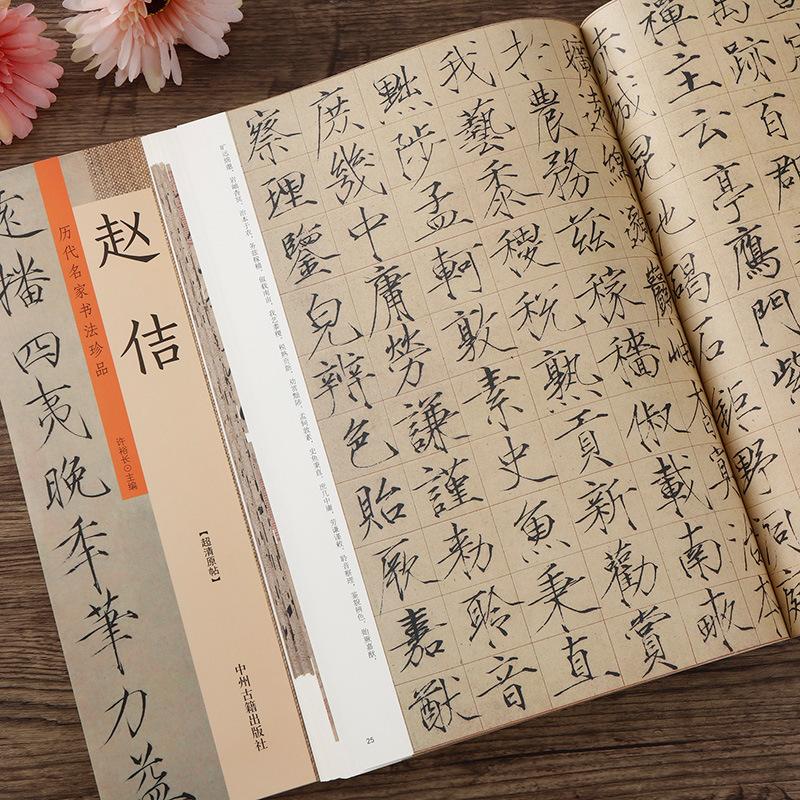 遠播四夷晚秊筆力益
历代名家书法珍品
赵佶
许裕长⊙主编
【超清原帖】
中州古籍出版社
禹跡百郡
禪主云亭鴈門紫
城昆池碣石鉅野洞庭
曠遠綿邈巖岫杳冥治本
於農務茲稼穡俶載南畝
我藝黍稷稅熟貢新勸賞
黜陟孟軻敦素史魚秉直
庶幾中庸勞謙謹勑聆音
察理鑒皃辨色貽厥嘉猷
旷远绵邈，岩岫杳冥。治本于农，务兹稼穑。俶载南亩，我艺黍稷。税熟贡新，劝赏黜陟。孟轲敦素，史鱼秉直。庶几中庸，劳谦谨敕。聆音察理，鉴貌辨色。贻厥嘉猷，
25